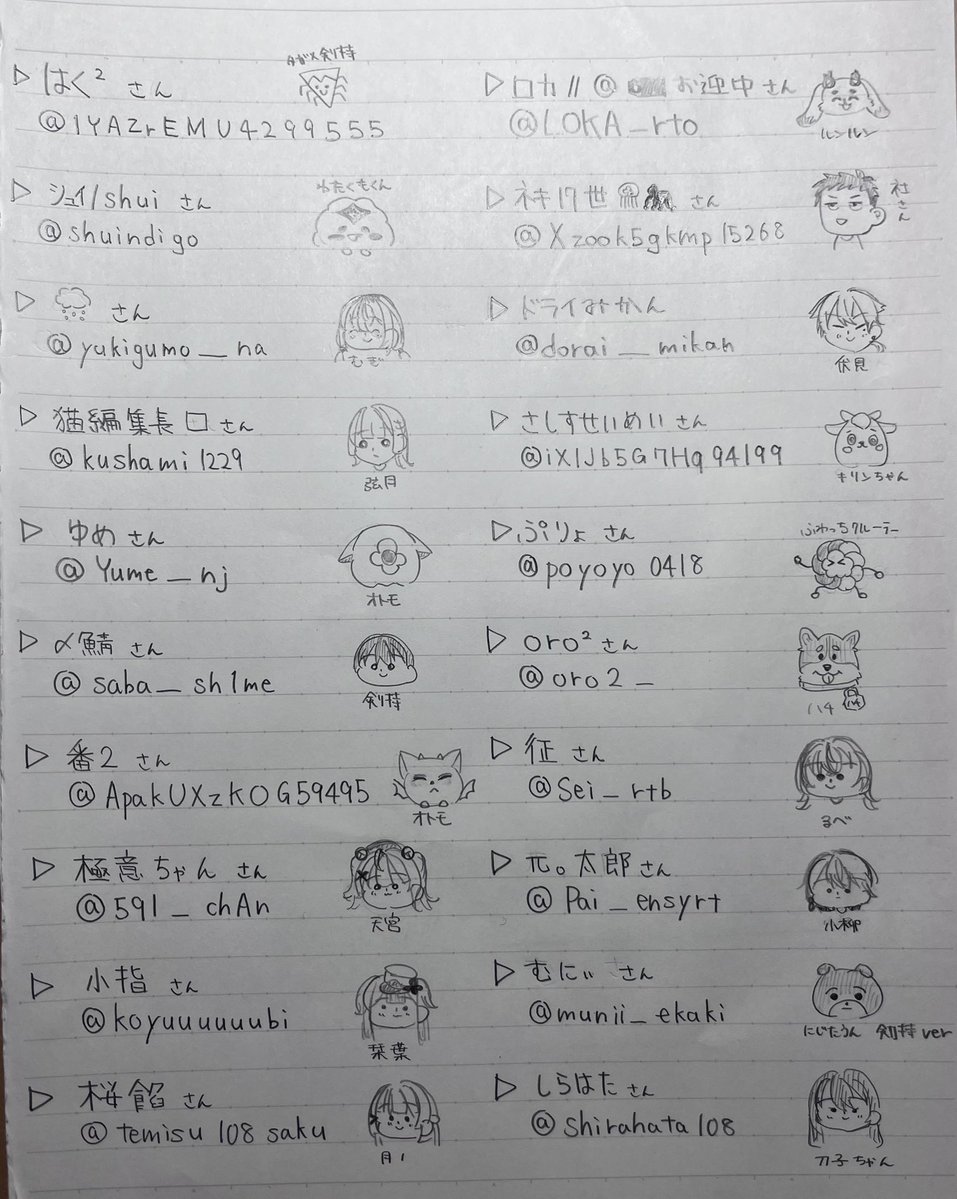 ▷ はく² さん
@1YAZrEMU4299555
▷ シュイ/shui さん
わたくもくん
@shuindigo
▷ さん
@yukigumo__na
むぎ
▷ 猫編集長口 さん
@kushami1229
弦月
▷ ゆめ さん
@Yume_nj
オトモ
▷ 〆鯖 さん
@saba_sh1me
剣持
▷ 番2 さん
@ApakUXzKOG59495
オトモ
▷ 極意ちゃん さん
@591_chAn
天宮
▷ 小指 さん
@koyuuuuuubi
栞葉
▷ 桜餡 さん
@temisu108saku
月ノ
▷ ロカ // @ お迎中 さん
@LOKA_rto
ルンルン
▷ ネキ17世 さん
社さん
@Xzook5gkmp15268
▷ ドライみかん
@dorai__mikan
伏見
▷ さしすせいめい さん
@iX1Jb5G7Hq94199
キリンちゃん
▷ ぷりょ さん
ふわっちクルーラー
@poyoyo0418
▷ oro² さん
@oro2_
ハチ
▷ 征 さん
@Sei_rtb
るべ
▷ π。太郎 さん
@Pai_ensyrt
小柳
▷ むにぃ さん
@munii_ekaki
にじたうん 剣持 ver
▷ しらはた さん
@shirahata108
刀子ちゃん